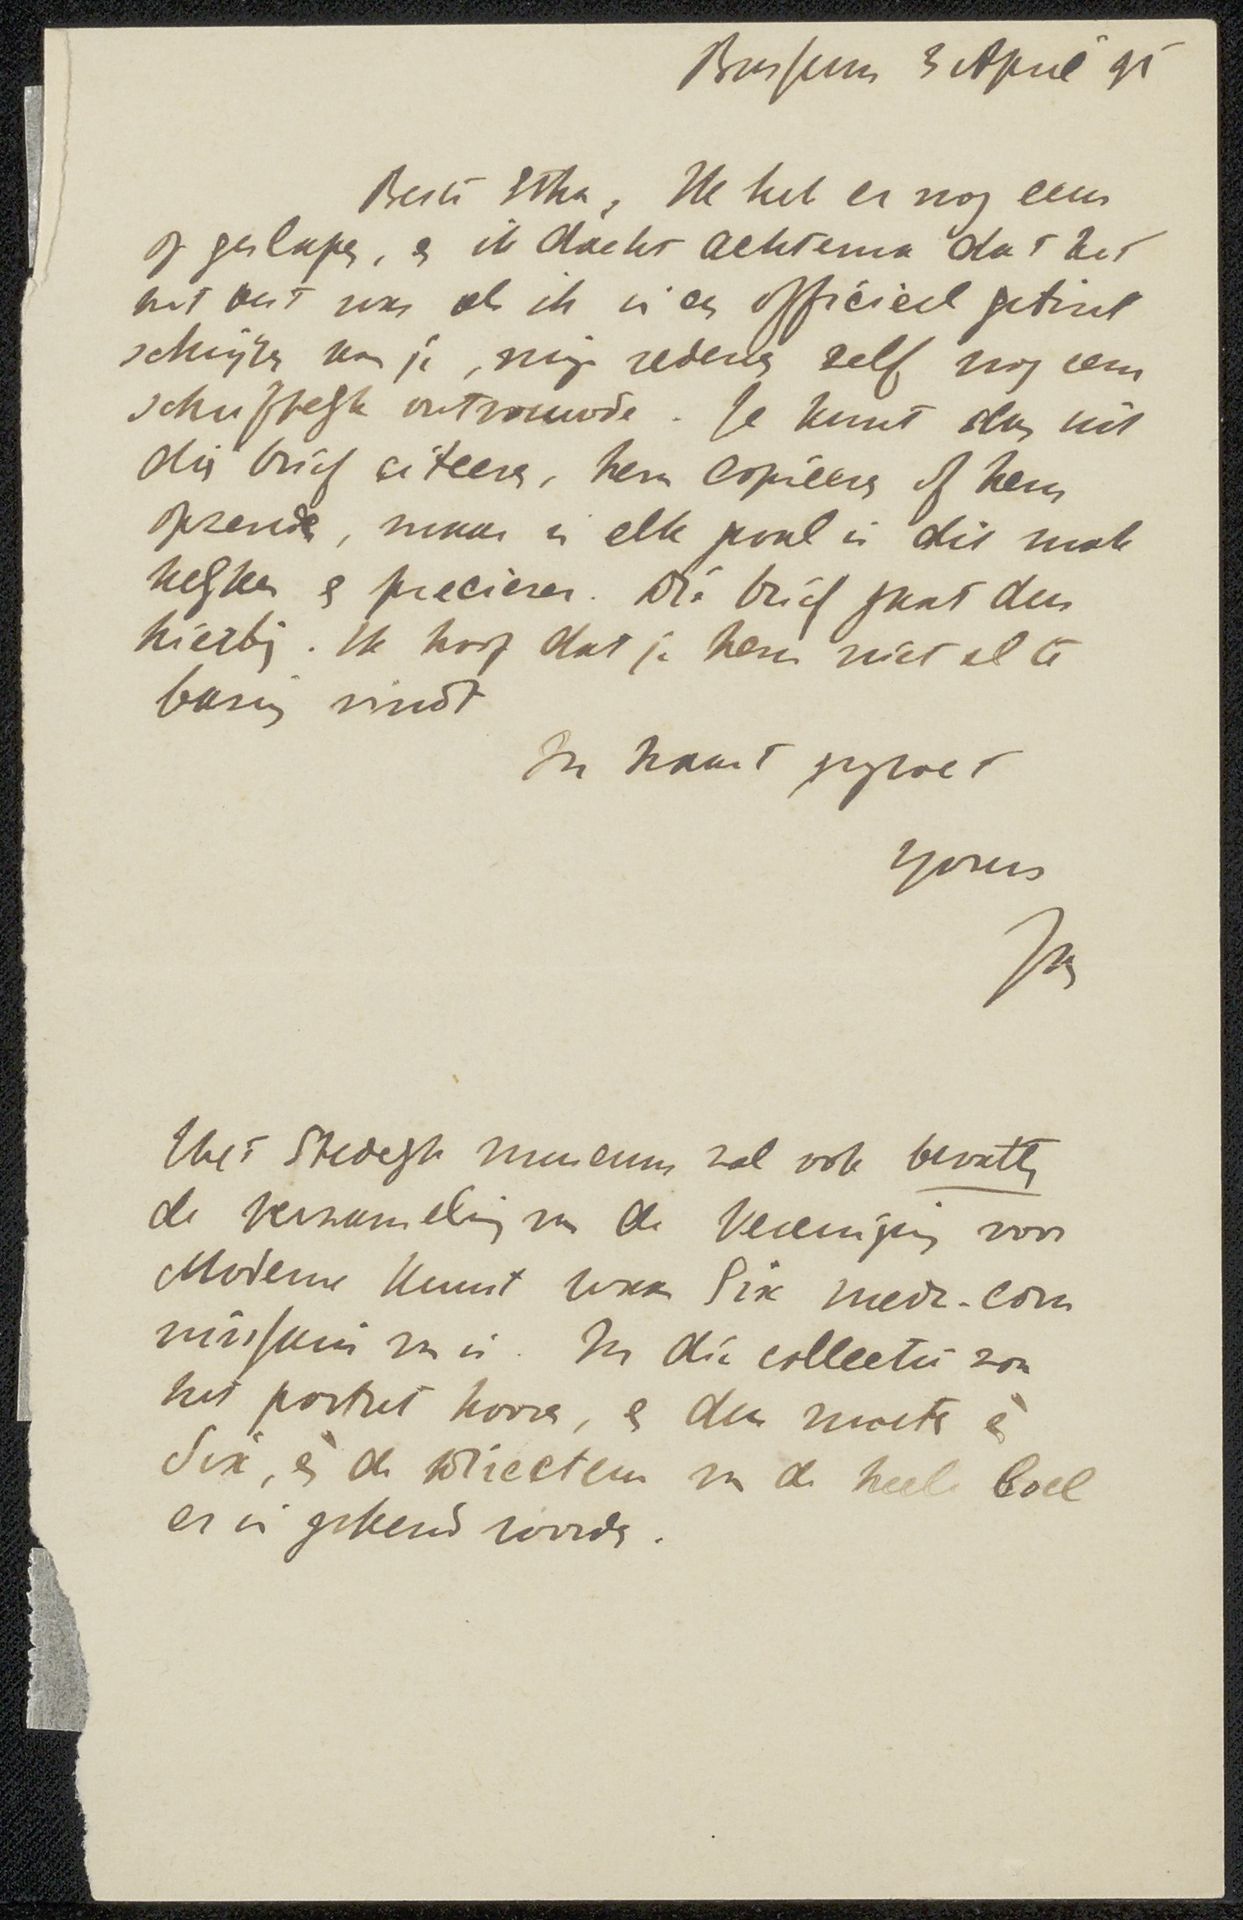 Bussum 3 April 95
Beste Etha, Ik heb er nog eens
op geslapen, en ik dacht achterna dat het
het best was als ik in een officieel getint
schrijven aan je, mijn redenen zelf nog eens
schriftelijk ontvouwde. Je kunt dan uit
dien brief citeeren, hem copieeren of hem
opzenden, maar in elk geval is dit makkelijker
en precieser. Die brief gaat dus
hierbij. Ik hoop dat je hem niet al te
bazig vindt
In haast gegroet
Yours
Jan
Het Stedelijk museum zal ook bevatten
de verzameling van de Vereeniging voor
Moderne Kunst waar Six mede-com
missaris van is. In die collectie zou
het portret hooren, en dan moeten èn
Six, èn de directeur van de heele boel
er in gekend worden.